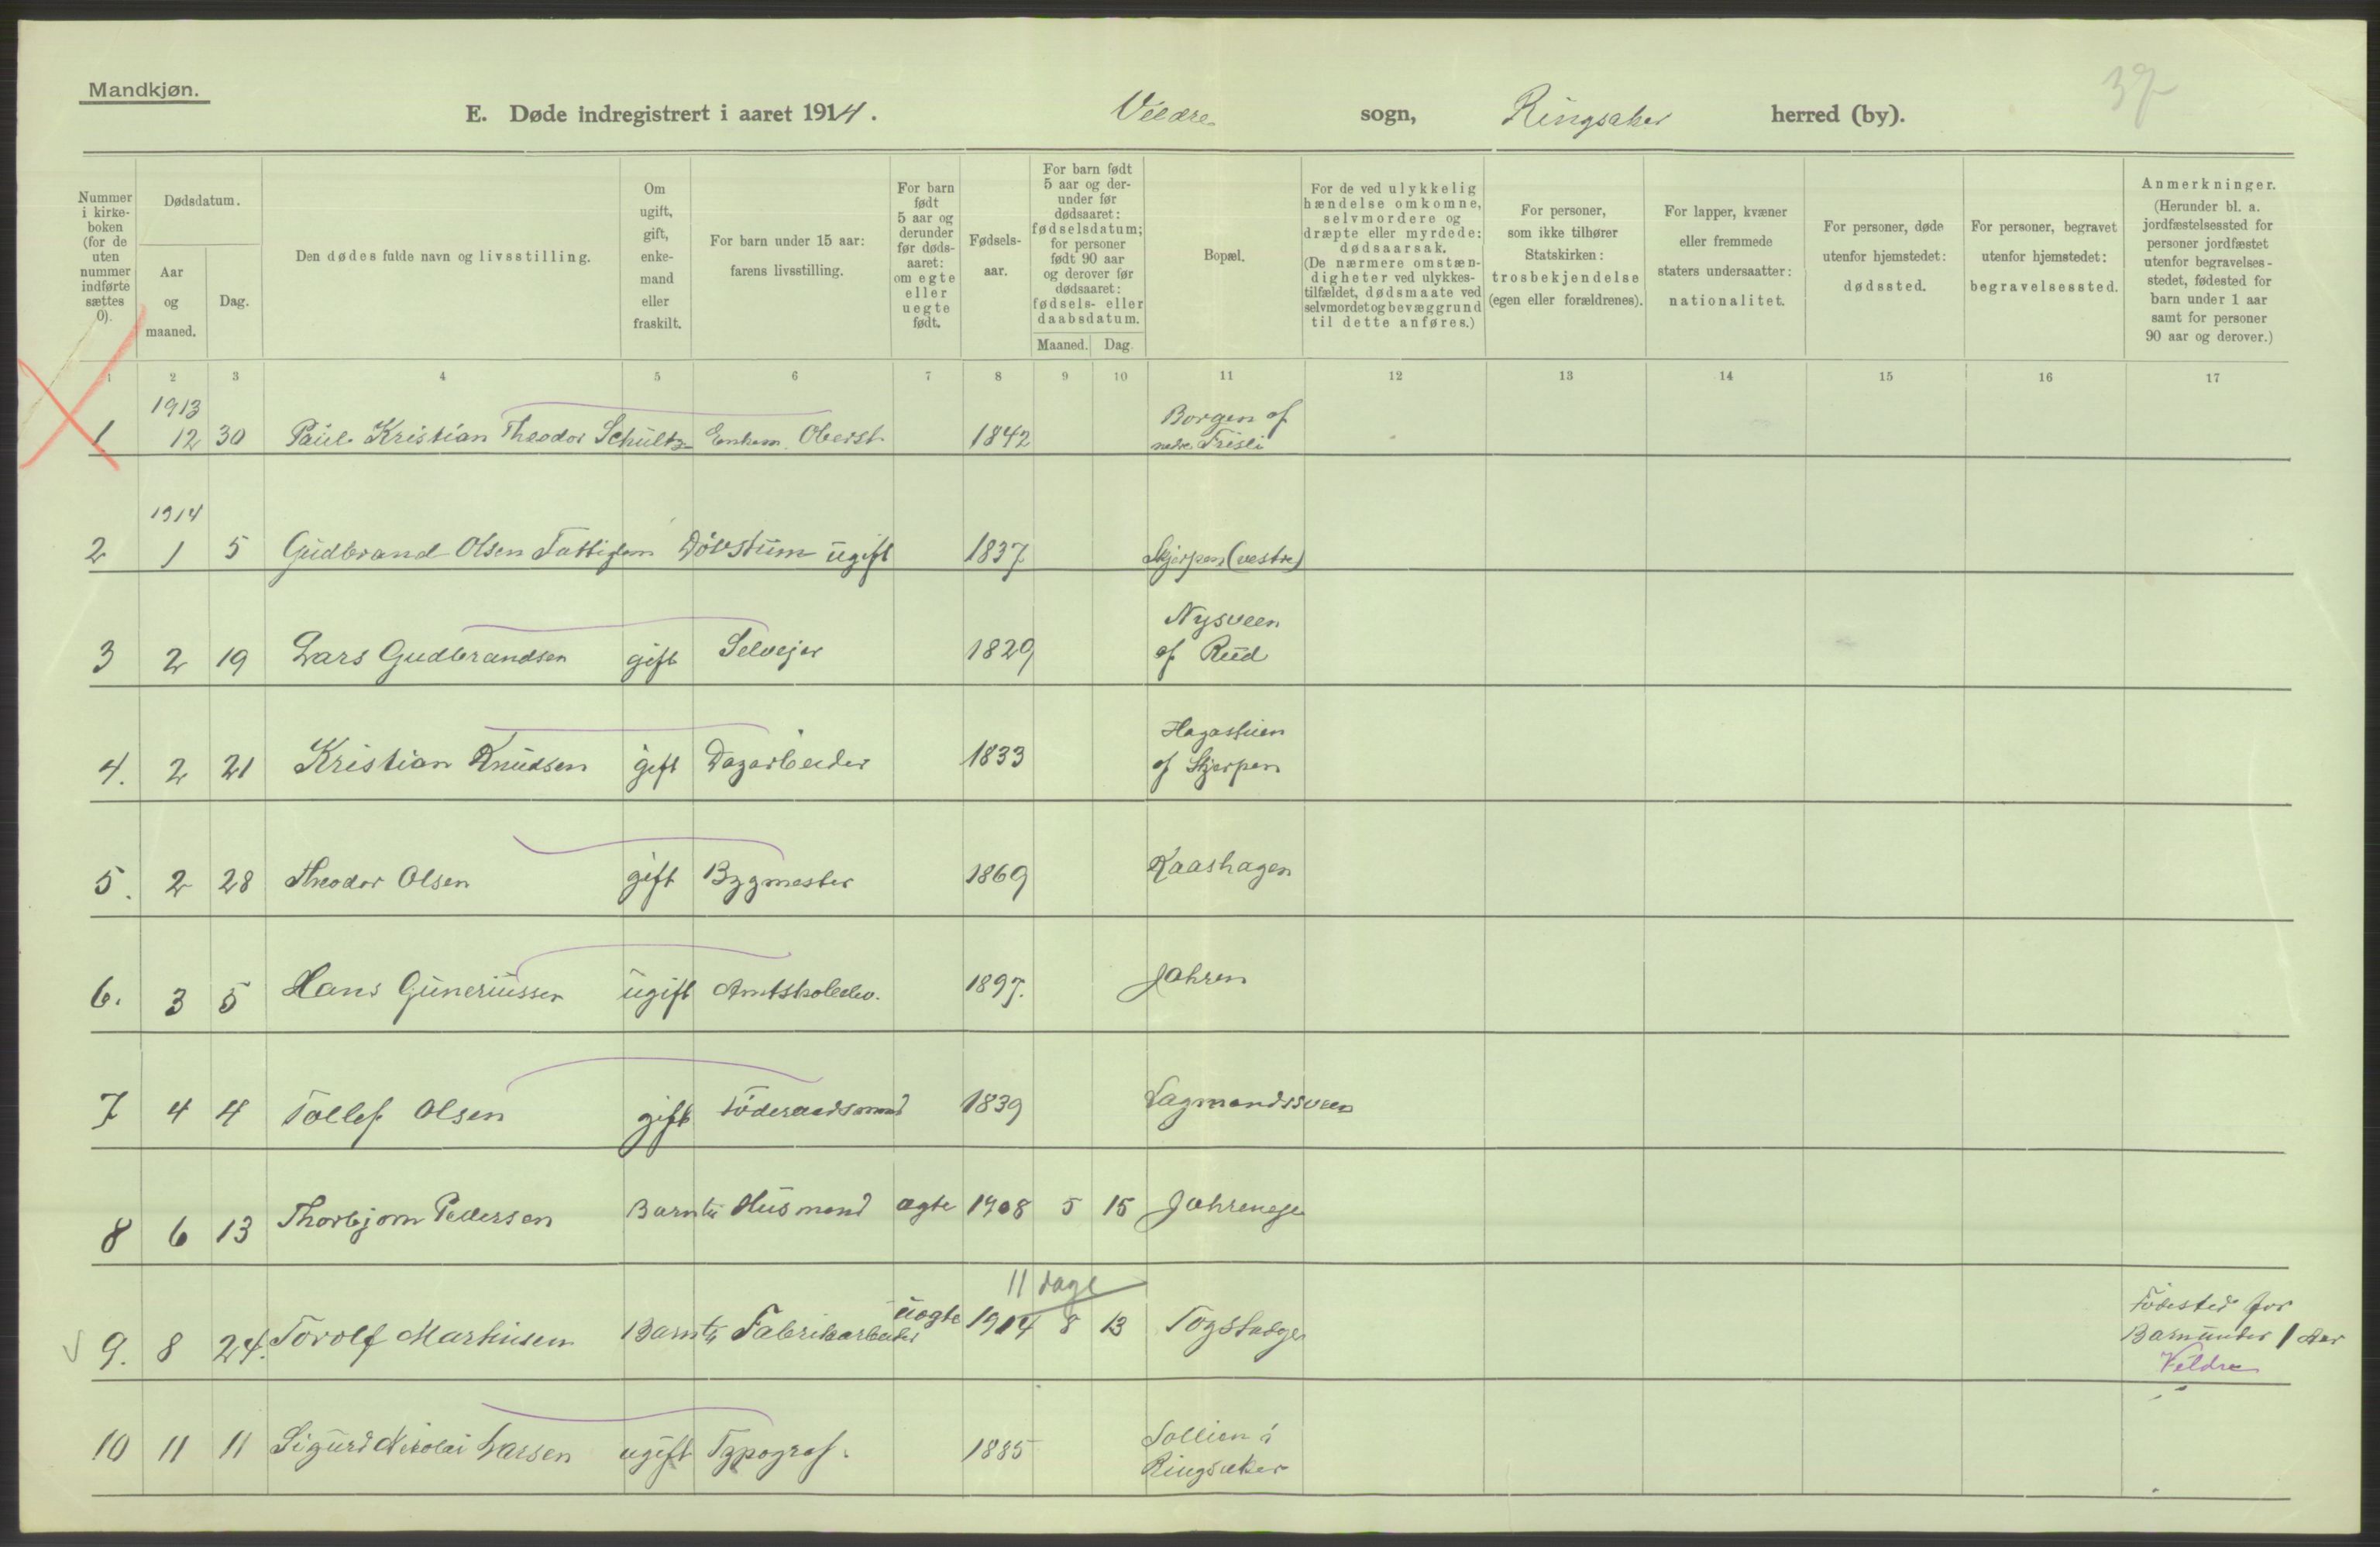 Mandkjøn.
37
E. Døde indregistrert i aaret 1914. Veldre sogn, Ringsaker herred (by).
Nummer i kirkeboken (for de uten nummer indførte sættes 0).
Dødsdatum.
Aar og maaned.
Dag.
Den dødes fulde navn og livsstilling.
Om ugift, gift, enkemand eller fraskilt.
For barn under 15 aar: farens livsstilling.
For barn født 5 aar og derunder før dødsaaret: om egte eller uegte født.
Fødselsaar.
For barn født 5 aar og derunder før dødsaaret: fødselsdatum; for personer født 90 aar og derover før dødsaaret: fødsels- eller daabsdatum.
Maaned. Dag.
Bopæl.
For de ved ulykkelig hændelse omkomne, selvmordere og dræpte eller myrdede: dødsaarsak. (De nærmere omstændigheter ved ulykkestilfældet, dødsmaate ved selvmordet og bevæggrund til dette anføres.)
For personer, som ikke tilhører Statskirken: trosbekjendelse (egen eller forældrenes).
For lapper, kvæner eller fremmede staters undersaatter: nationalitet.
For personer, døde utenfor hjemstedet: dødssted.
For personer, begravet utenfor hjemstedet: begravelsessted.
Anmerkninger. (Herunder bl. a. jordfæstelsessted for personer jordfæstet utenfor begravelsesstedet, fødested for barn under 1 aar samt for personer 90 aar og derover.)
1 2 3 4 5 6 7 8 9 10 11 12 13 14 15 16 17
1913
1 12 30 Paul Kristian Theodor Schultz Enkem. Oberst 1842 Borgen af nedre Frisli
1914
2 1 5 Gudbrand Olsen Fattiglem Døvstum ugift 1837 Skjerpen (vestre)
3 2 19 Lars Gudbrandsen gift Selvejer 1829 Nysveen af Rud
4. 2 21 Kristian Knudsen gift Dagarbeider 1833 Hagastuen af Skjerpen
5. 2 28 Theodor Olsen gift Bygmester 1869 Kaashagen
6. 3 5 Hans Guneriussen ugift Amtskoleelev. 1897. Jahren
7 4 4 Tollef Olsen gift Föderaadsmand 1839 Lagmandssveen
8 6 13 Thorbjørn Pedersen Barn til Husmand ægte 1908 5 15 Jahrenege
11 dage
9. 8 24. Torolf Martinsen Barn til Fabrikarbeider uægte 1914 8 13 Togstadge Födested for Barn under 1 Aar Veldre
10 11 11 Sigurd Nikolai Larsen ugift Typograf. 1885 Sollien i Ringsaker